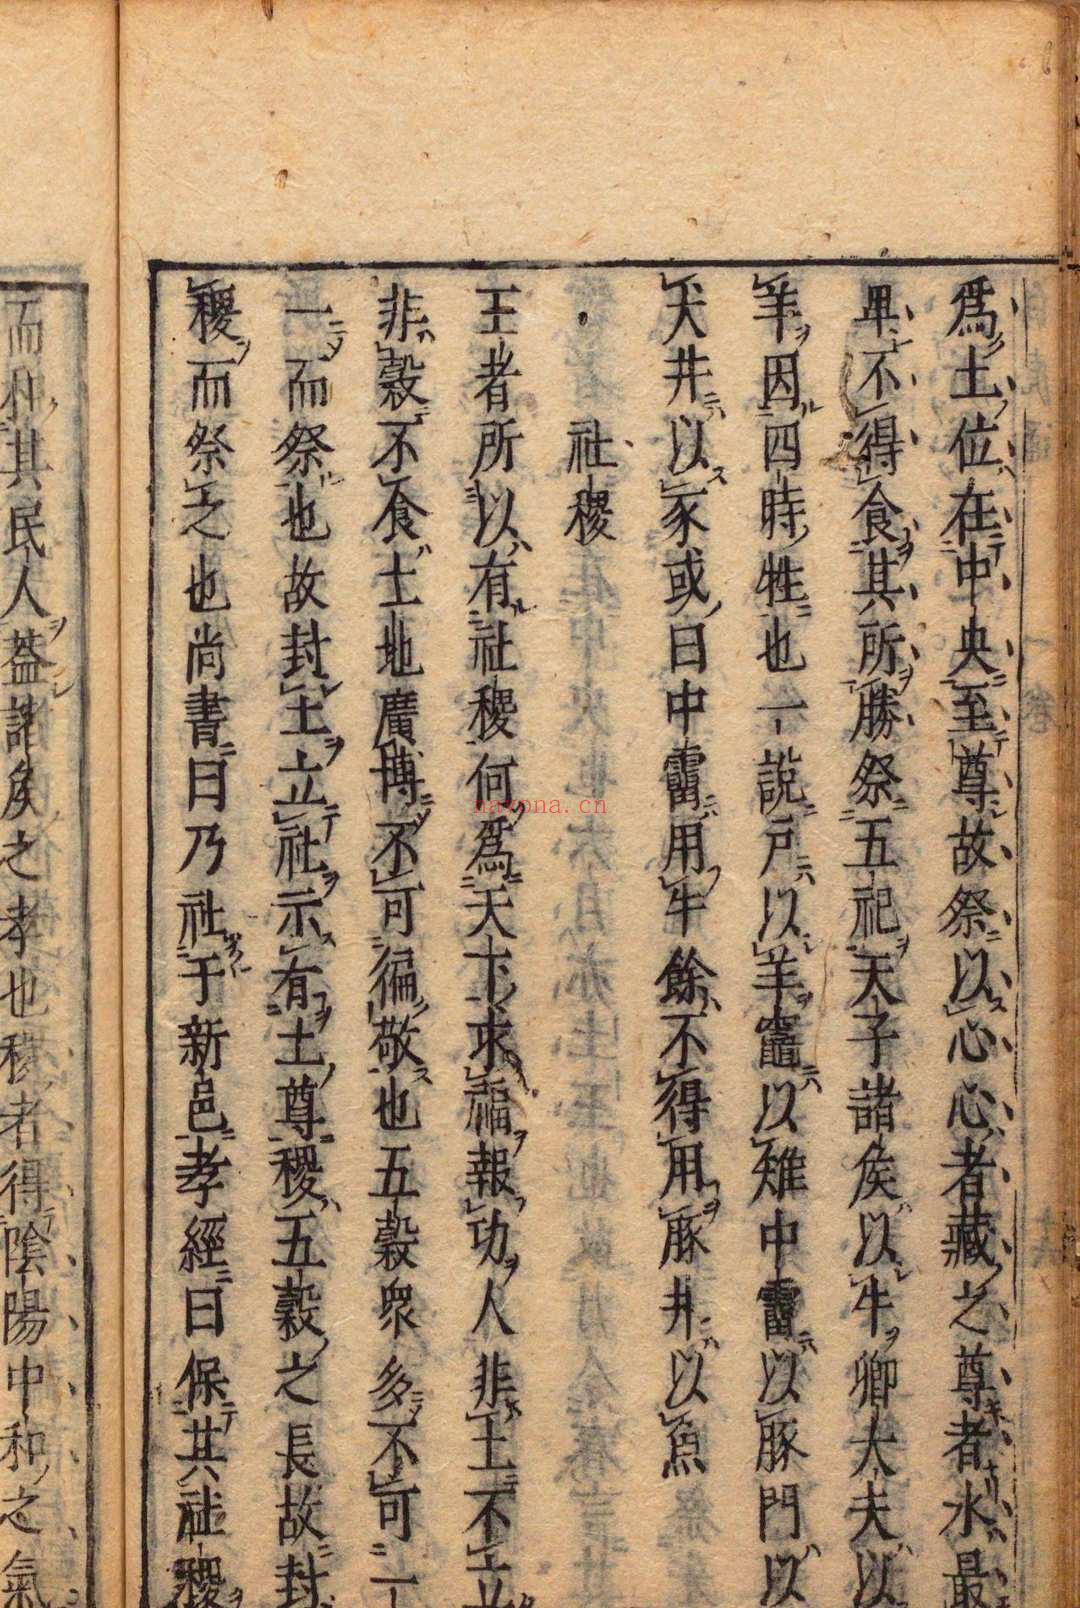 爲土位在中央至尊故祭以心心者藏之尊者水最
卑不得食其所勝祭五祀天子諸矦以牛卿大夫以
羊因四時牲也一說戶以羊竈以雉中霤以豚門以
犬井以豕或曰中霤用牛餘不得用豚井以魚
社稷
王者所以有社稷何爲天下求福報功人非土不立
非穀不食土地廣博不可徧敬也五穀衆多不可一
一而祭也故封土立社示有土尊稷五穀之長故封
稷而祭之也尚書曰乃社于新邑孝經曰保其社稷
而和其民人葢諸矦之孝也稷者得陰陽中和之氣
nayona.cn